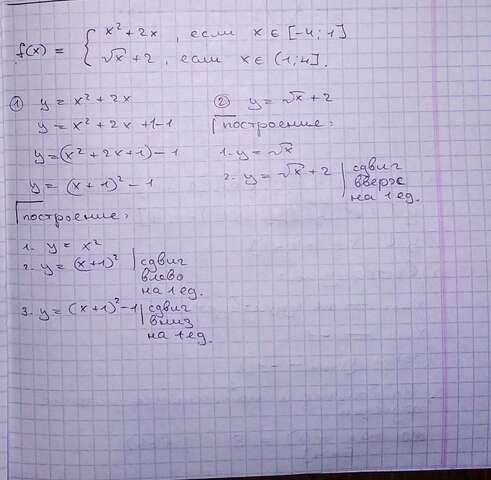 f(x) = { x² + 2x , если x ∈ [-4; 1]
√x + 2 , если x ∈ (1; 4].
① y = x² + 2x
y = x² + 2x + 1 - 1
y = (x² + 2x + 1) - 1
y = (x + 1)² - 1
Построение:
1. y = x²
2. y = (x+1)² | сдвиг
влево
на 1 ед.
3. y = (x+1)² - 1 | сдвиг
вниз
на 1 ед.
② y = √x + 2
Построение:
1. y = √x
2. y = √x + 2 | сдвиг
вверх
на 1 ед.